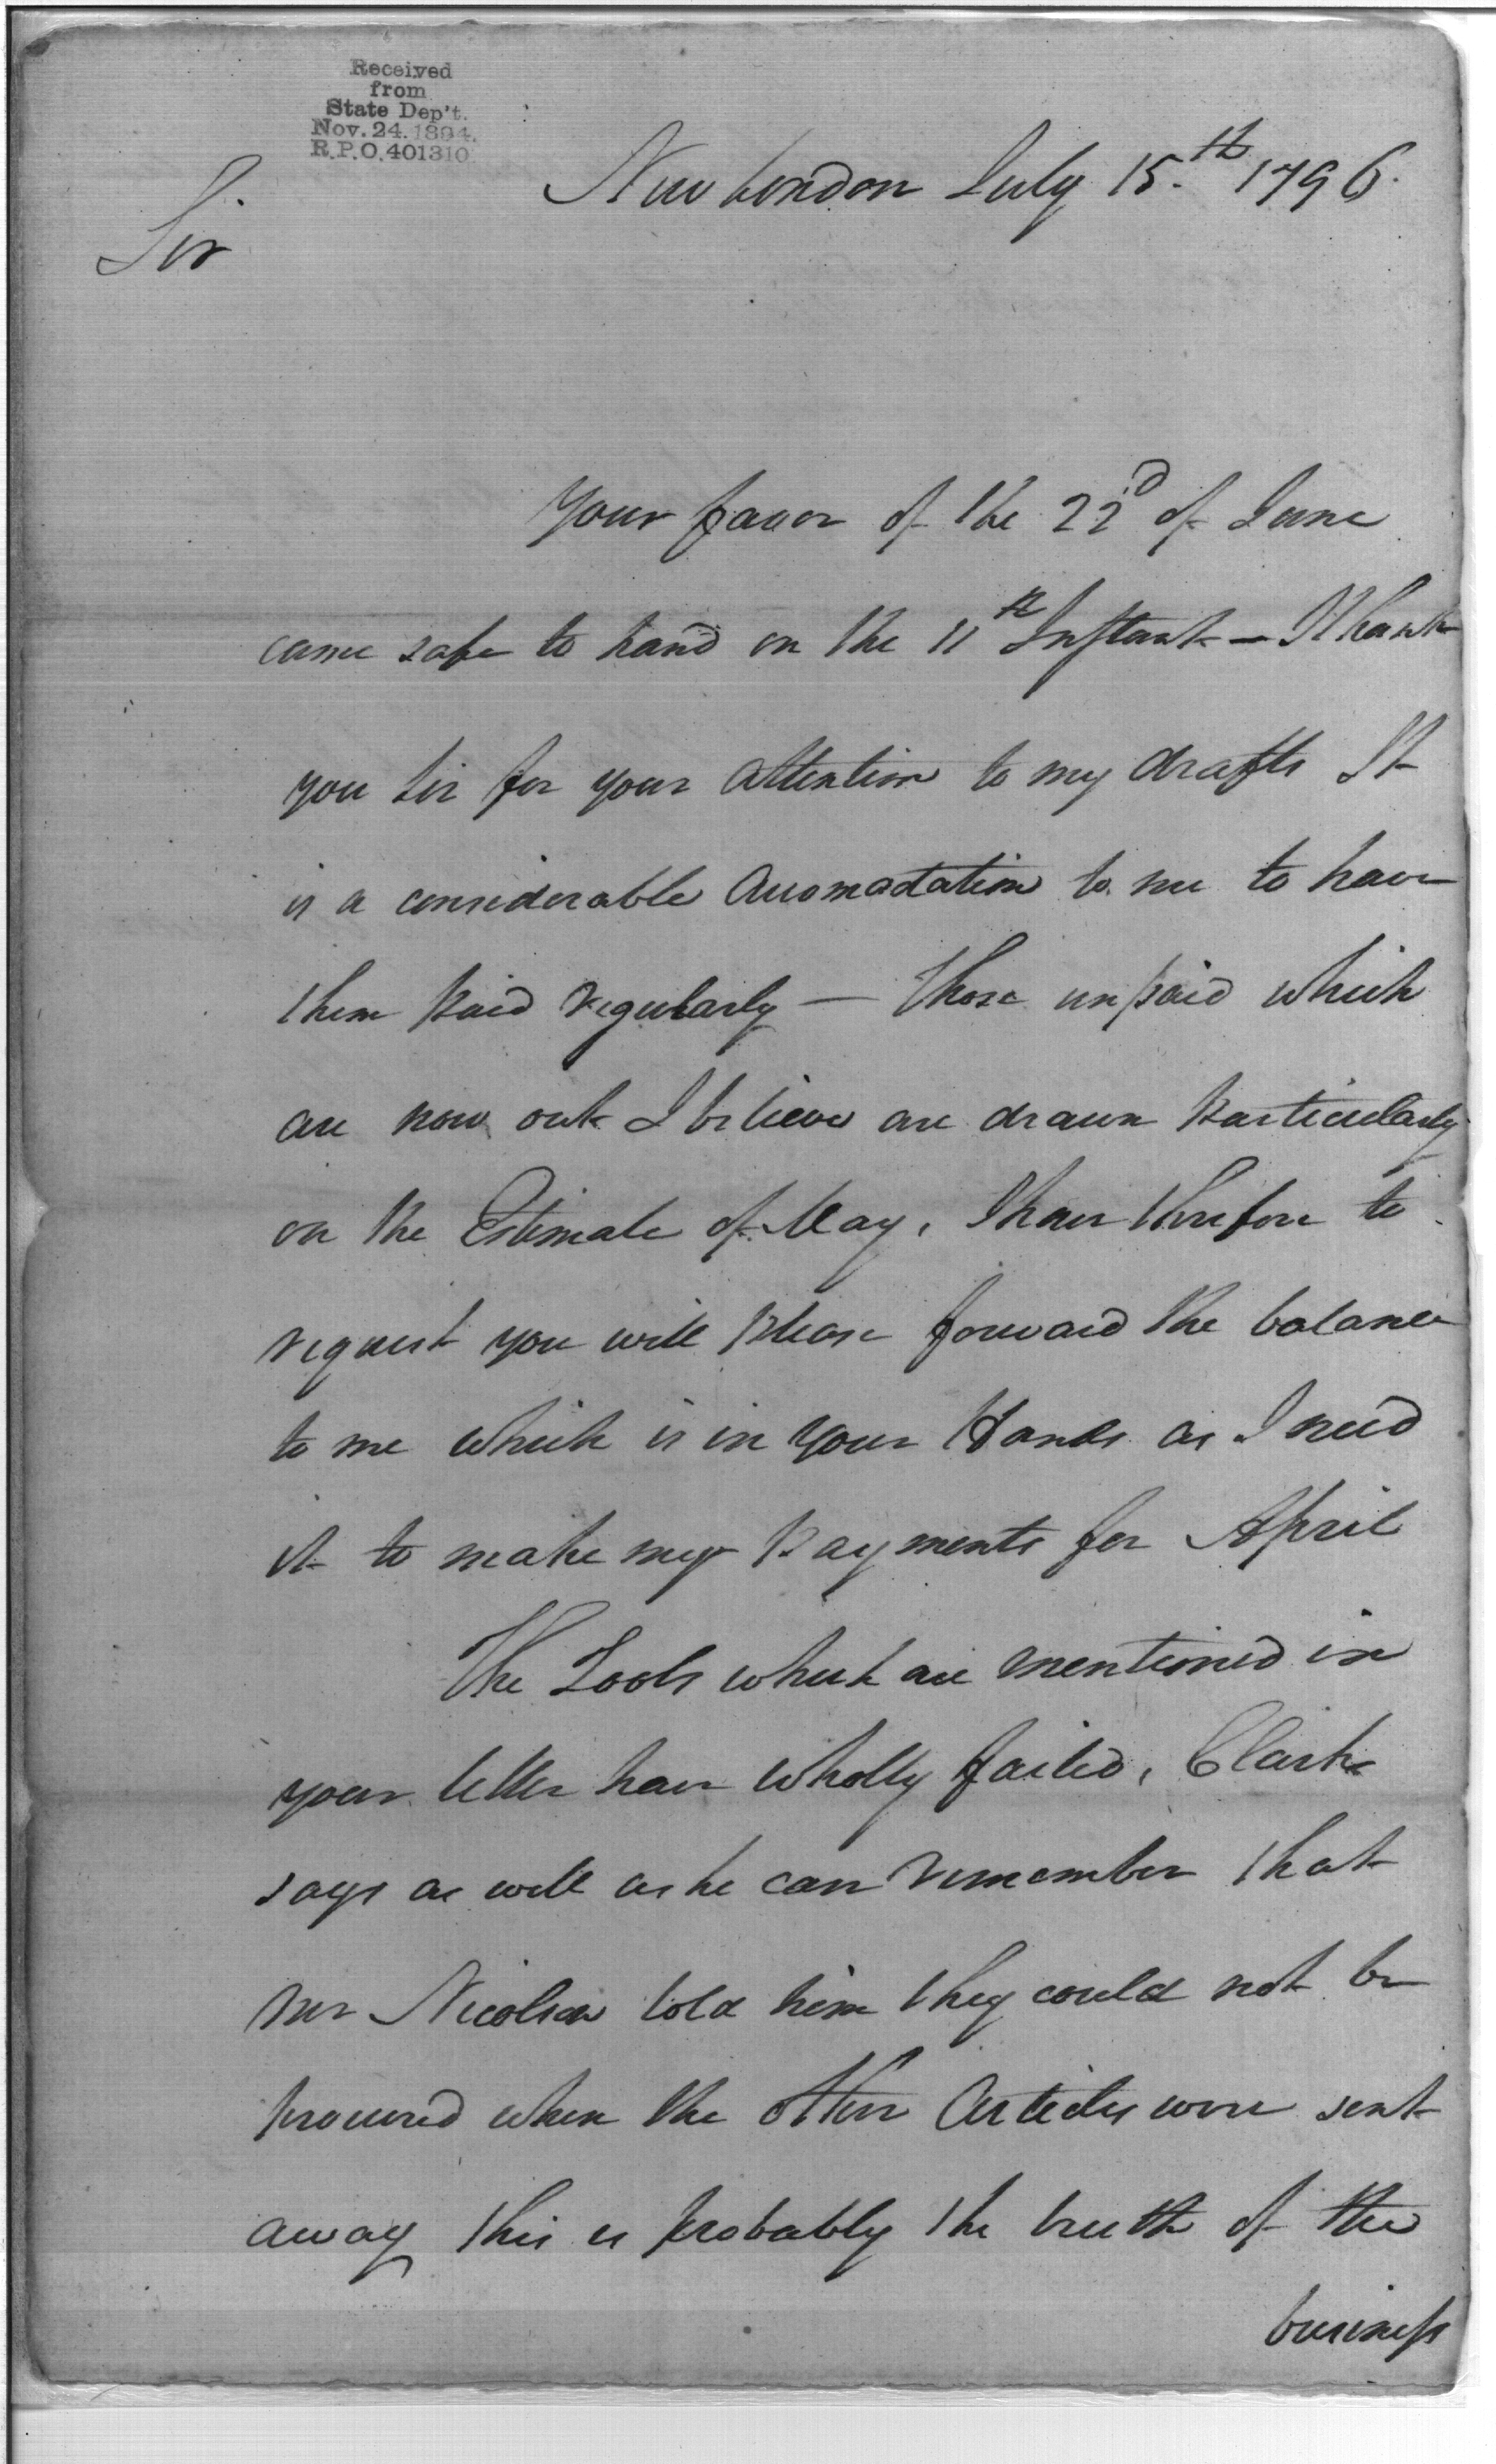 Received
from
State Dep't.
Nov. 24. 1894.
R.P.O. 401310
New London July 15.th 1796.
Sir
Your favor of the 22d of June
came safe to hand on the 11th Instant — I thank
you Sir for your attention to my drafts It
is a considerable Accomodation to me to have
them paid regularly — Those unpaid which
are now out I believe are drawn particularly
on the Estimate of May, I have therefore to
request you will please forward the balance
to me which is in your Hands as I need
it to make my payments for April
The Tools which are mentioned in
your letter have wholly failed, Clarke
says as well as he can remember that
Mr Nicolson told him they could not be
procured when the other Articles were sent
away this is probably the truth of the
business